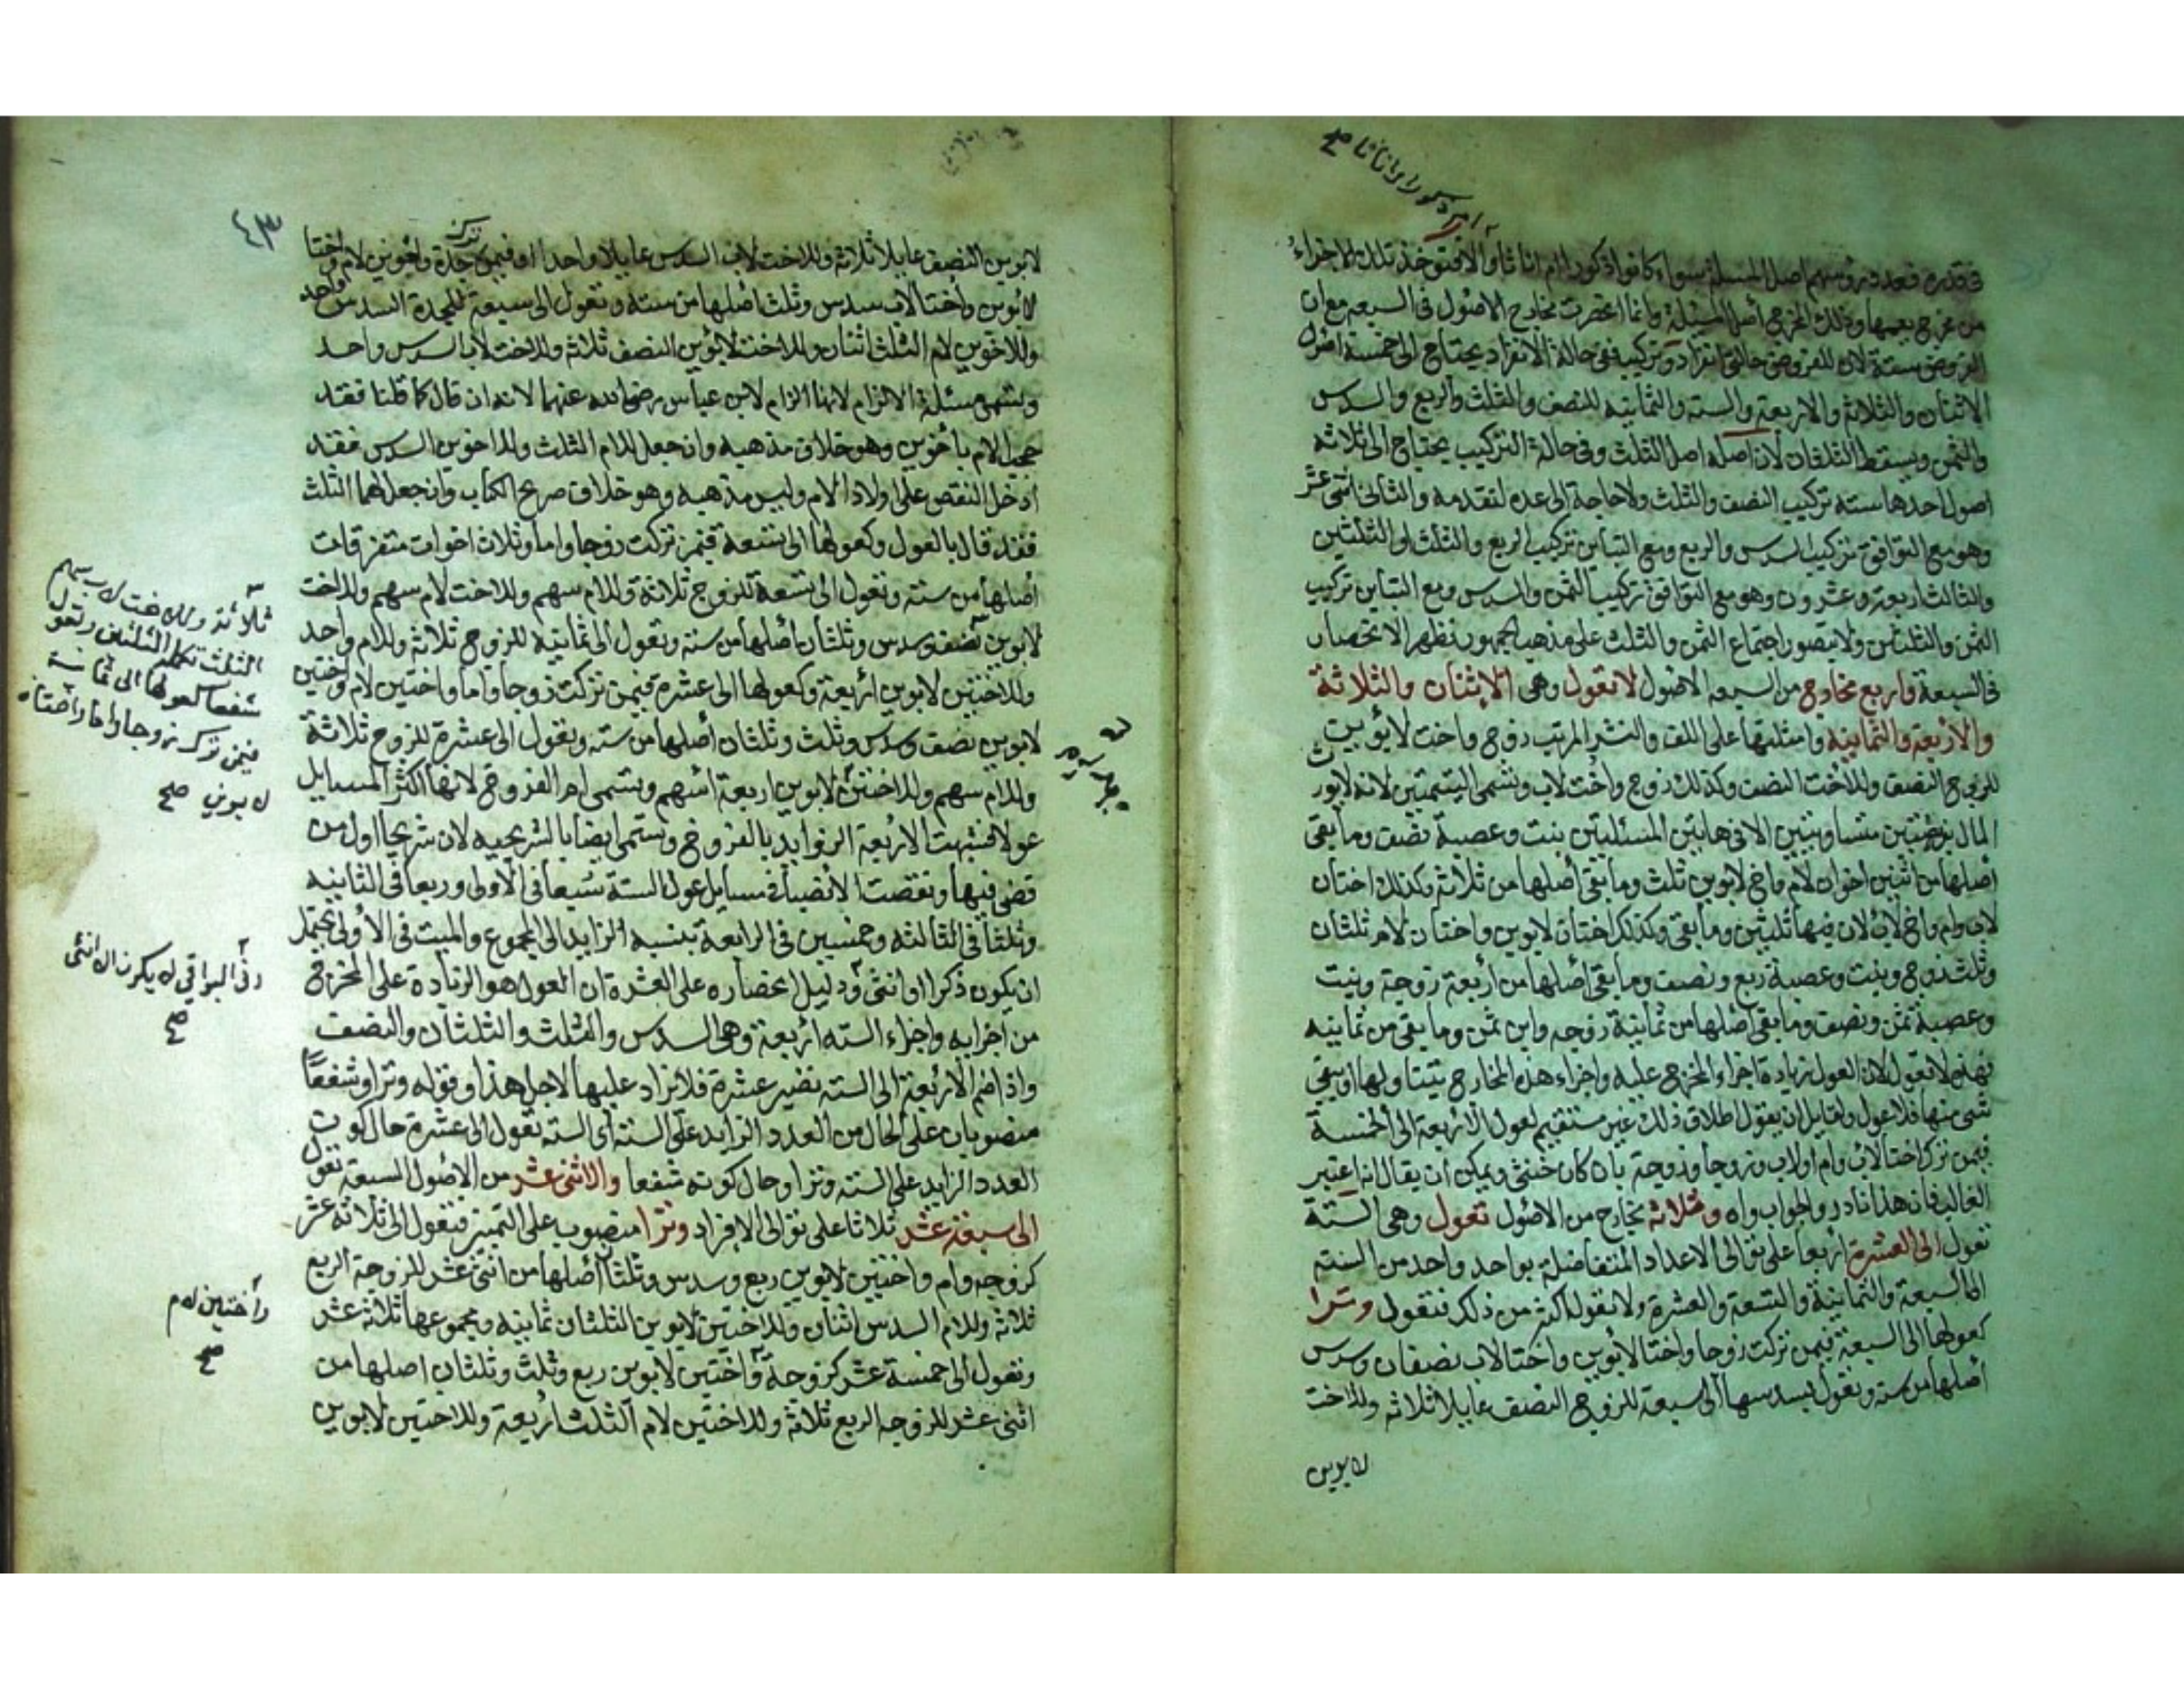 في قدره فعدد رؤسهم اصل المسئلة سواء كانوا ذكورا ام اناثا والا فتوخذ تلك الاجزاء
من مخرج يعمها وذلك المخرج أصل المسئلة وانما انحصرت مخارج الاصول في السبعه مع ان
الفروض ستة لان للفروض حالتي انفراد وتركيب ففي حالة الانفراد يحتاج الى خمسة اصول
الاثنان والثلاثة والاربعة والستة والثمانيه للنصف والثلث والربع والسدس
والثمن ويسقط الثلثان لان اصله اصل الثلث وفي حالة التركيب يحتاج الى ثلاثه
اصول احدها سته تركيب النصف والثلث ولا حاجة الى عده لتقدمه والثاني اثنى عشر
وهو مع التوافق تركيب السدس والربع ومع التباين تركيب الربع والثلث او الثلثين
والثالث اربعة وعشرون وهو مع التوافق تركيب الثمن والسدس ومع التباين تركيب
الثمن والثلثين ولا يتصور اجتماع الثمن والثلث على مذهب الجمهور فظهر الانحصار
في السبعة واربع مخارج من السبعه الاصول لا تعول وهي الاثنان والثلاثة
والاربعة والثمانيه وامثلتها على اللف والنشر المرتب زوج واخت لابوين
للزوج النصف وللاخت النصف وكذلك زوج واخت لاب وتسمى اليتيمتين لانه لا يورث
المال بفرضين متساويين الا في هاتين المسئلتين بنت وعصبة نصف وما بقى
أصلها من اثنين اخوان لام واخ لابوين ثلث وما بقى أصلها من ثلاثة وكذلك اختان
لاب وام واخ لاب لان فيها ثلثين وما بقى وكذلك اختان لابوين واختان لام ثلثان
وثلث زوج وبنت وعصبة ربع ونصف وما بقى أصلها من أربعة زوجة وبنت
وعصبة ثمن ونصف وما بقى أصلها من ثمانية زوجه وابن ثمن وما بقى من ثمانيه
فهذه لا تعول لان العول زيادة اجزاء المخرج عليه واجزاء هذه المخارج تتساولها او يبقى
شئ منها فلا عول ولقايل ان يقول اطلاق ذلك غير مستقيم لعول الاربعة الى الخمسة
فيمن ترك اختا لاب وام اولاب وزوجا وزوجة بان كان خنثى ويمكن ان يقال انه اعتبر
الغالب فان هذا نادر والجواب واه وثلاثه مخارج من الاصول تعول وهي الستة
تعول الى العشرة أربعا على توالى الاعداد المتفاضلة بواحد واحد من الستة
الى السبعة والثمانية والتسعة والعشرة ولا تعول اكثر من ذلك فتعول وترا
كعولها الى السبعة فيمن تركت زوجا واختا لابوين واختا لاب نصفان وسدس
أصلها من سته وتعول بسدسها الى سبعة للزوج النصف عايلا ثلاثه وللاخت
لابوين
٤٣
لابوين النصف عايلا ثلاثة وللاخت لاب السدس عايلا واحدا او فيمن ترك جدة واخوين لام واختا
لابوين واختا لاب سدس وثلث أصلها من سته وتعول الى سبعة للجدة السدس واحد
وللاخوين لام الثلث اثنان وللاخت لابوين النصف ثلاثة وللاخت لاب السدس واحد
وتسمى مسئلة الالزام لانها الزام لابن عباس رضى الله عنهما لانه ان قال كما قلنا فقد
حجب الام باخوين وهو خلاف مذهبه وان جعل للام الثلث وللاخوين السدس فقد
ادخل النقص على اولاد الام وليس مذهبه وهو خلاف صريح الكتاب وان جعل لهما الثلث
فقد قال بالعول وكعولها الى تسعة فيمن تركت زوجا واما وثلاث اخوات متفرقات
أصلها من سته وتعول الى تسعة للزوج ثلاثة وللام سهم وللاخت لام سهم وللاخت
لابوين نصف وسدس وثلثان أصلها من ستة وتعول الى ثمانيه للزوج ثلاثة وللام واحد
وللاختين لابوين اربعة وكعولها الى عشرة فيمن تركت زوجا واما واختين لام واختين
لابوين نصف وسدس وثلث وثلثان أصلها من سته وتعول الى عشرة للزوج ثلاثة
وللام سهم وللاختين لابوين اربعة اسهم وتسمى ام الفروخ لانها اكثر المسايل
عولا فشبهت الاربعة الزوايد بالفروخ وتسمى ايضا بالشريحيه لان شريحا اول من
قضى فيها ونقصت الانصباء في مسايل عول الستة سبعا في الاولى وربعا في الثانيه
وثلثا في الثالثه وخمسين في الرابعة بنسبه الزايد الى المجموع والميت في الاولى يحتمل
ان يكون ذكرا او انثى ودليل انحصاره على العشرة ان العول هو الزيادة على المخرج
من اجزايه واجزاء السته أربعة وهى السدس والثلث والثلثان والنصف
واذا ضم الاربعة الى السته تصير عشرة فلا تزاد عليها لاجل هذا وقوله وترا وشفعا
منصوبان على الحال من العدد الزايد على السته أى السته تعول الى عشرة حال كون
العدد الزايد على السته وترا وحال كونه شفعا والاثنى عشر من الاصول السبعة تعول
الى سبعة عشر ثلاثا على توالى الافراد وترا منصوب على التمييز فتعول الى ثلاثه عشر
كزوجه وام واختين لابوين ربع وسدس وثلثان أصلها من اثنى عشر للزوجة الربع
ثلاثه وللام السدس اثنان وللاختين لابوين الثلثان ثمانيه ومجموعها ثلاثه عشر
وتعول الى خمسة عشر كزوجة واختين لابوين ربع وثلث وثلثان اصلها من
اثنى عشر للزوجه الربع ثلاثة وللاختين لام الثلث اربعة وللاختين لابوين
ثلاثة وللاخت لاب سهم
الثلث تكملة الثلثين وتعول
شفعا كعولها الى ثمانية
فيمن تركت زوجا واما واختان
لابوين صح
وفي البواقي لا يكون الا انثى
صح
واختين لام
صح